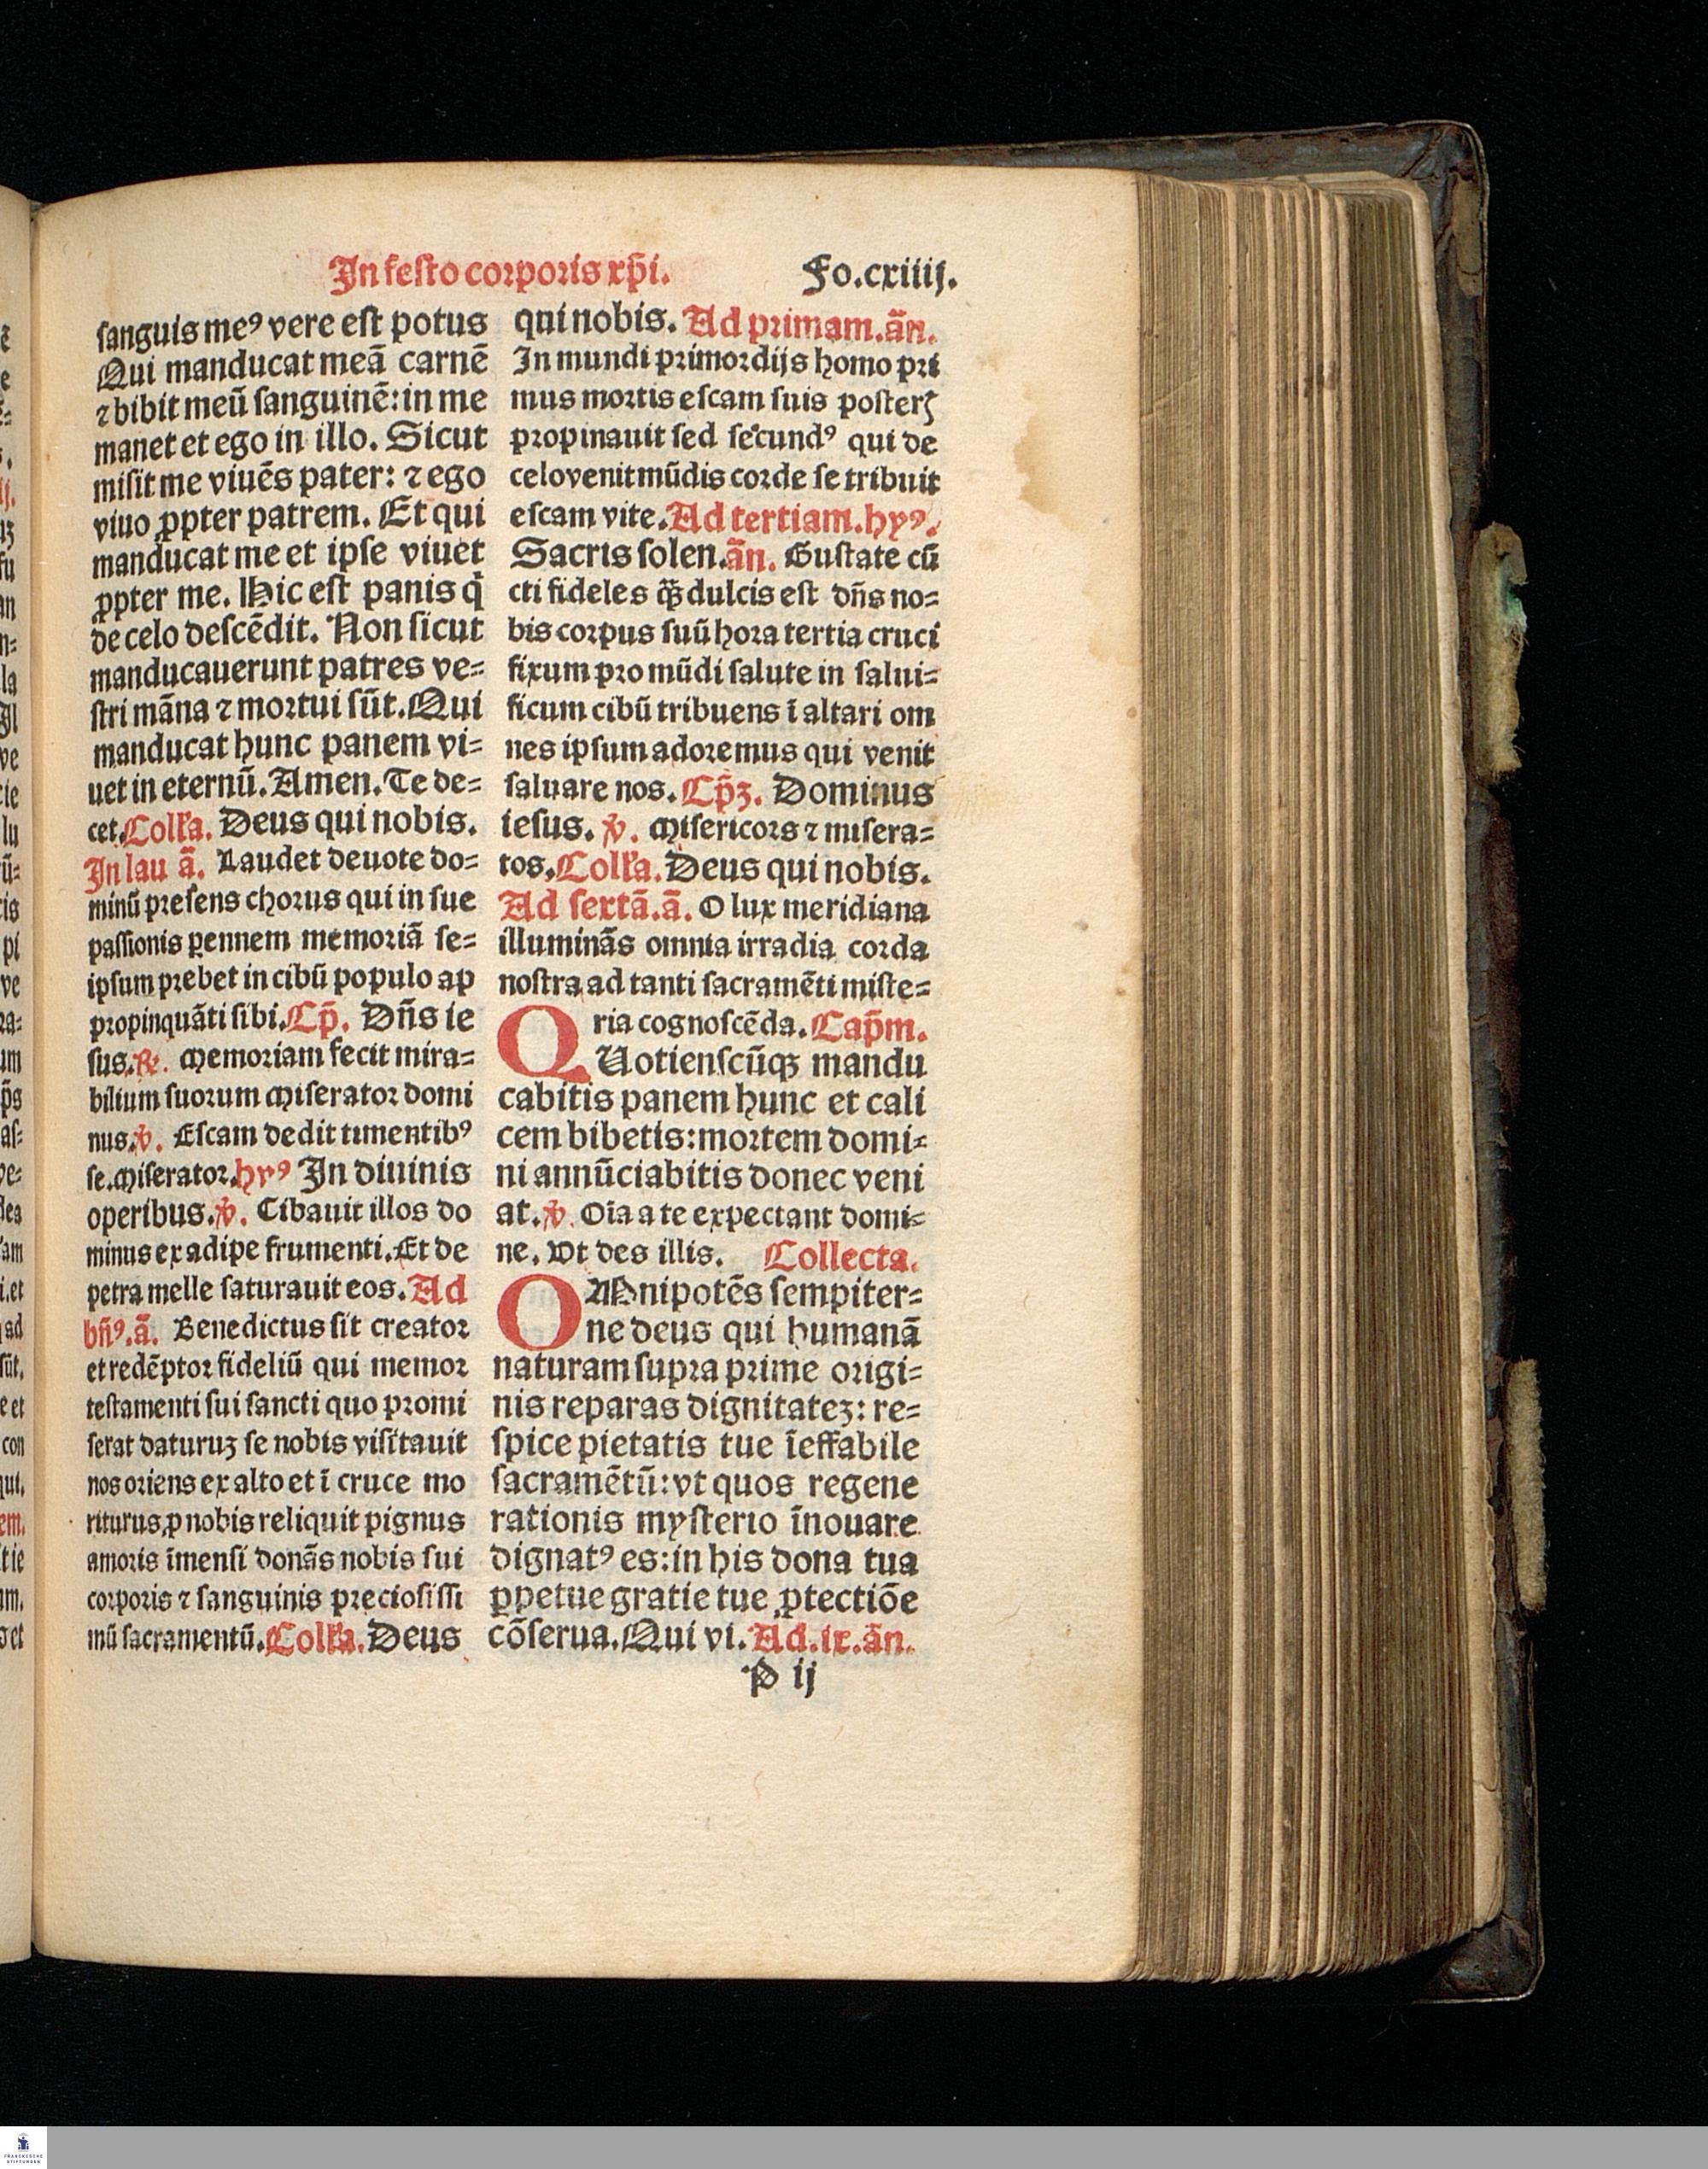 In festo corporis xp̄i. Fo.cxiiij.
sanguis meꝰ vere est potus
Qui manducat meā carnē
⁊ bibit meū sanguinē: in me
manet et ego in illo. Sicut
misit me viuēs pater: ⁊ ego
viuo ꝓpter patrem. Et qui
manducat me et ipse viuet
ꝓpter me. Hic est panis q̇
de celo descēdit. Non sicut
manducauerunt patres ve⸗
stri māna ⁊ mortui sūt. Qui
manducat hunc panem vi⸗
uet in eternū. Amen. Te de⸗
cet. Coll'a. Deus qui nobis.
In lau ā. Laudet deuote do⸗
minū presens chorus qui in sue
passionis ꝑennem memoriā se⸗
ipsum prebet in cibū populo ap
propinquāti sibi. Cp̄. Dn̄s ie
sus. ℟. Memoriam fecit mira⸗
bilium suorum Miserator domi
nus. ℣. Escam dedit timentibꝰ
se. Miserator. hyꝰ In diuinis
operibus. ℣. Cibauit illos do
minus ex adipe frumenti. Et de
petra melle saturauit eos. Ad
bn̄ꝰ. ā. Benedictus sit creator
et redēptor fideliū qui memor
testamenti sui sancti quo promi
serat daturuꝫ se nobis visitauit
nos oriens ex alto et ī cruce mo
riturus ꝓ nobis reliquit pignus
amoris īmensi donās nobis sui
corporis ⁊ sanguinis preciosissi
mū sacramentū. Coll'a. Deus
qui nobis. Ad primam. ān.
In mundi primordijs homo pri
mus mortis escam suis posterꝝ
propinauit sed secundꝰ qui de
celo venit mūdis corde se tribuit
escam vite. Ad tertiam. hyꝰ.
Sacris solen. ān. Gustate cū
cti fideles qꝫ̄ dulcis est dn̄s no⸗
bis corpus suū hora tertia cruci
fixum pro mūdi salute in salui⸗
ficum cibū tribuens ī altari om
nes ipsum adoremus qui venit
saluare nos. Cp̄ꝫ. Dominus
iesus. ℣. Misericors ⁊ misera⸗
tos. Coll'a. Deus qui nobis.
Ad sextā. ā. O lux meridiana
illuminās omnia irradia corda
nostra ad tanti sacramēti miste⸗
ria cognoscēda. Cap̄m.
QUotienscūqꝫ mandu
cabitis panem hunc et cali
cem bibetis: mortem domi⸗
ni annūciabitis donec veni
at. ℣. Oīa a te expectant domi⸗
ne. Vt des illis. Collecta.
OMnipotēs sempiter⸗
ne deus qui humanā
naturam supra prime origi⸗
nis reparas dignitateꝫ: re⸗
spice pietatis tue īeffabile
sacramētū: vt quos regene
rationis mysterio īnouare
dignatꝰ es: in his dona tua
ꝑpetue gratie tue ꝓtectiōe
cōserua. Qui vi. Ad. ix. ān.
P ij
FRANCKESCHE
STIFTUNGEN